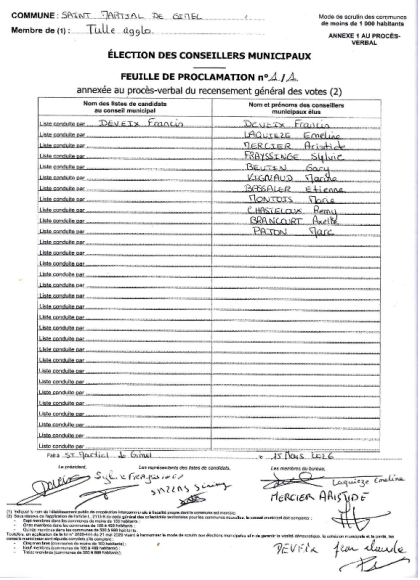 COMMUNE : SAINT MARTIAL DE GIMEL
Membre de (1) : Tulle agglo.
Mode de scrutin des communes
de moins de 1 000 habitants
ANNEXE 1 AU PROCÈS-
VERBAL
ÉLECTION DES CONSEILLERS MUNICIPAUX
FEUILLE DE PROCLAMATION n° 1/1
annexée au procès-verbal du recensement général des votes (2)
Nom des listes de candidats
au conseil municipal
Nom et prénoms des conseillers
municipaux élus
Liste conduite par DEVEIX Francis DEVEIX Francis
Liste conduite par LAQUIEZE Emeline
Liste conduite par MERCIER Aristide
Liste conduite par FRAYSSINGE Sylvie
Liste conduite par BEUTIN Gary
Liste conduite par VIGNAUD Marine
Liste conduite par BESSALER Etienne
Liste conduite par MONTOIS Marie
Liste conduite par CHASTELOUX Remy
Liste conduite par BRANCOURT Axelle
Liste conduite par PATON Marc
Liste conduite par
Liste conduite par
Liste conduite par
Liste conduite par
Liste conduite par
Liste conduite par
Liste conduite par
Liste conduite par
Liste conduite par
Liste conduite par
Liste conduite par
Liste conduite par
Liste conduite par
Liste conduite par
Liste conduite par
Liste conduite par
Liste conduite par
Liste conduite par
Fait à St Martial de Gimel le 15 Mars 2026
Le président, Les représentants des listes de candidats, Les membres du bureau,
Laquieze Emeline
MERCIER ARISTIDE
DEVEIX Jean Claude